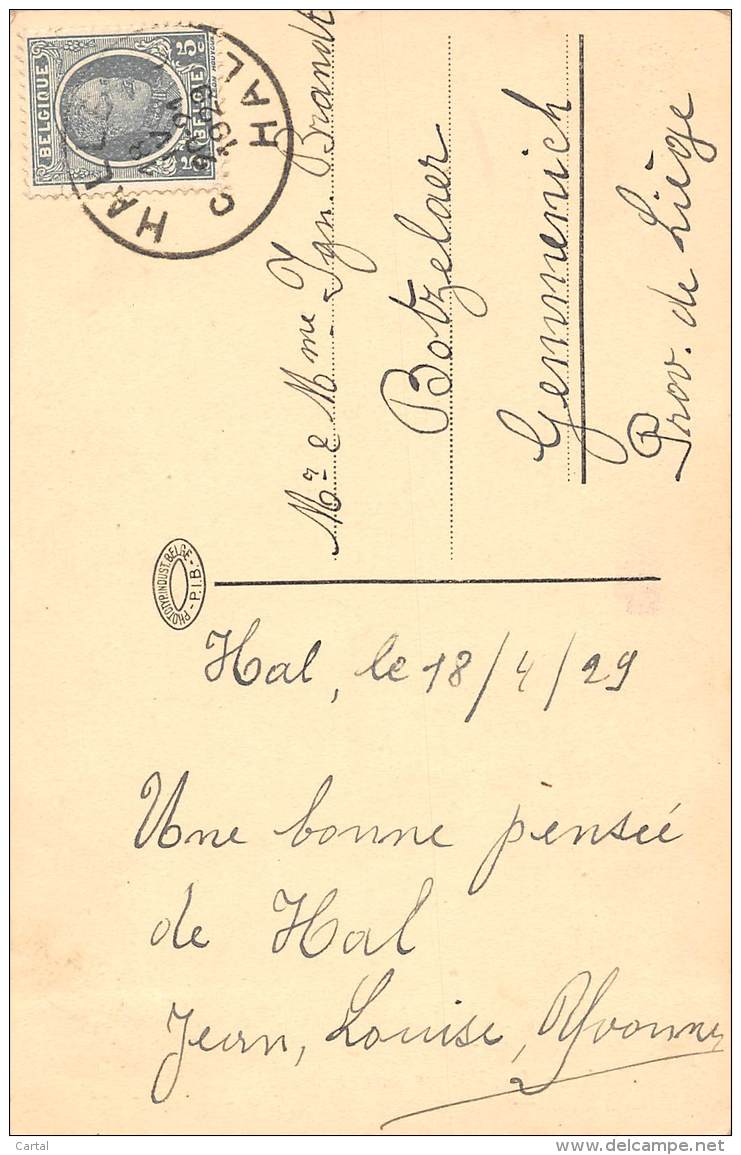 BELGIQUE
BELGIE
5c
HALLE
HAL
1929
C
Mr & Mme Ign. Brandt
Botzelaer
Gemmenich
Prov. de Liège
PHOTOTYP.INDUST.BELGE
- P.I.B. -
Hal, le 18/4/29
Une bonne pensée
de Hal
Jean, Louise, Yvonne
Cartal
delcampe.net